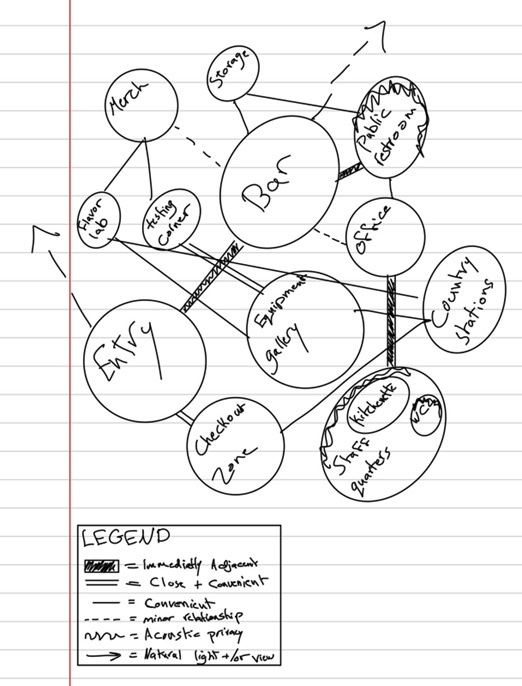 Storage
Merch
Public
restroom
Bar
Flavor
lab
testing
corner
Office
Country
stations
Equipment
gallery
Entry
Checkout
Zone
Kitchenette
WC
Staff
quarters
LEGEND
= Immediatly Adjacent
= Close + Convenient
= Convenient
= minor relationship
= Acoustic privacy
= Natural light +/or view